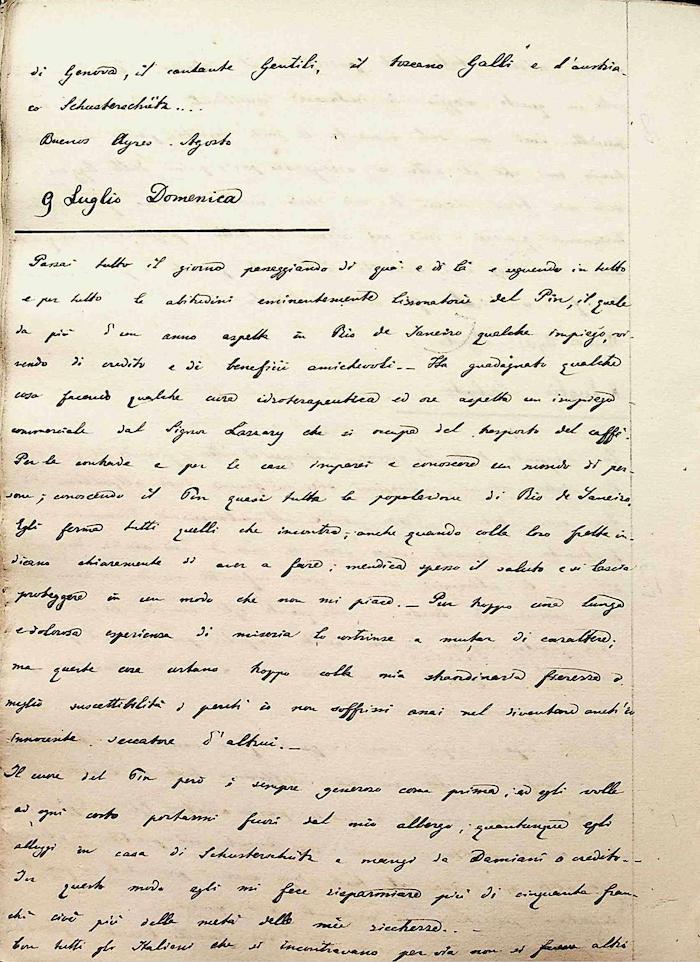 di Genova, il cantante Gentili, il toscano Galli e l'austria-
co Schusterschütz....
Buenos Ayres. Agosto
9 Luglio Domenica
Passai tutto il giorno passeggiando di quà e di là e seguendo in tutto
e per tutto le abitudini eminentemente lissonatorie del Pin, il quale
da più d'un anno aspetta in Rio de Janeiro qualche impiego, vi-
vendo di credito e di beneficii amichevoli._ Ha guadagnato qualche
cosa facendo qualche cura idroterapeutica ed ora aspetta un impiego
commerciale dal Signor Lazzary che si occupa del trasporto del caffè.
Per le contrade e per le case imparai a conoscere un mondo di per-
sone; conoscendo il Pin quasi tutta la popolazione di Rio de Janeiro.
Egli ferma tutti quelli che incontra, anche quando colla loro fretta in-
dicano chiaramente di aver a fare; mendica spesso il saluto e si lascia
proteggere in un modo che non mi piace._ Pur troppo una lunga
e dolorosa esperienza di miseria lo costrinse a mutar di carattere;
ma queste cose urtano troppo colla mia straordinaria fierezza o
meglio suscettibilità perchè io non soffrissi assai nel diventare anch'io
innocente seccatore d'altrui._
Il cuore del Pin però è sempre generoso come prima; ed egli volle
ad ogni costo portarmi fuori dal mio albergo, quantunque egli
alloggi in casa di Schusterschütz e mangi da Damiani a credito._
In questo modo egli mi fece risparmiare più di cinquanta fran-
chi cioè più della metà delle mie ricchezze.._
Con tutti gli Italiani che si incontravano per via non si faceva altro